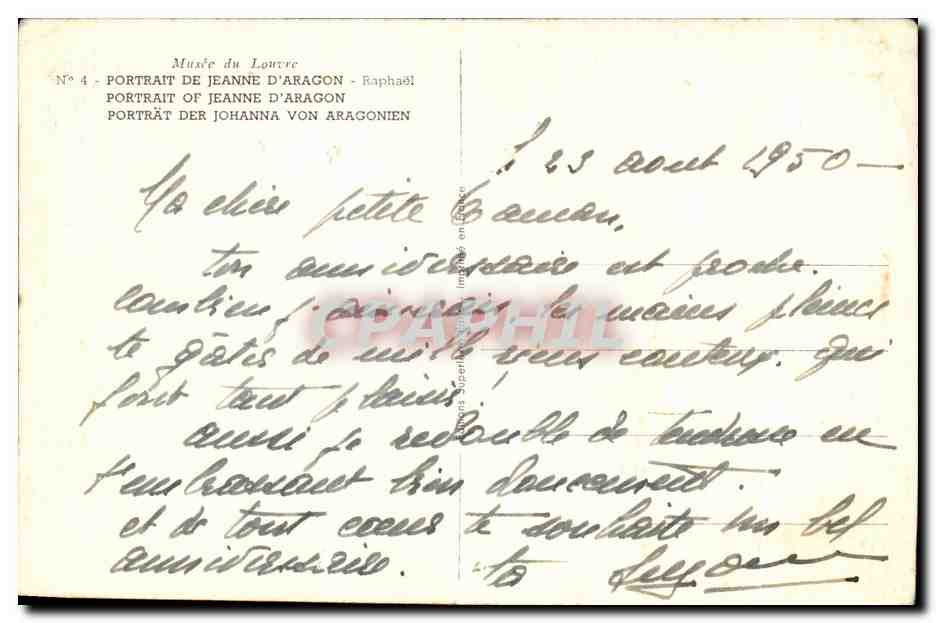 Musée du Louvre
N° 4 - PORTRAIT DE JEANNE D'ARAGON - Raphaël
PORTRAIT OF JEANNE D'ARAGON
PORTRÄT DER JOHANNA VON ARAGONIEN
23 aout 1950 -
Ma chère petite Maman,
ton anniversaire est proche.
combien j'aimerais, les mains pleines
te gâter de mille riens couteux. qui
font tant plaisir!
aussi je redouble de tendresse en
t'embrassant bien doucement.
et de tout coeur te souhaite un bel
anniversaire. ta Suzanne
Imprimé en France
CPAPHIL